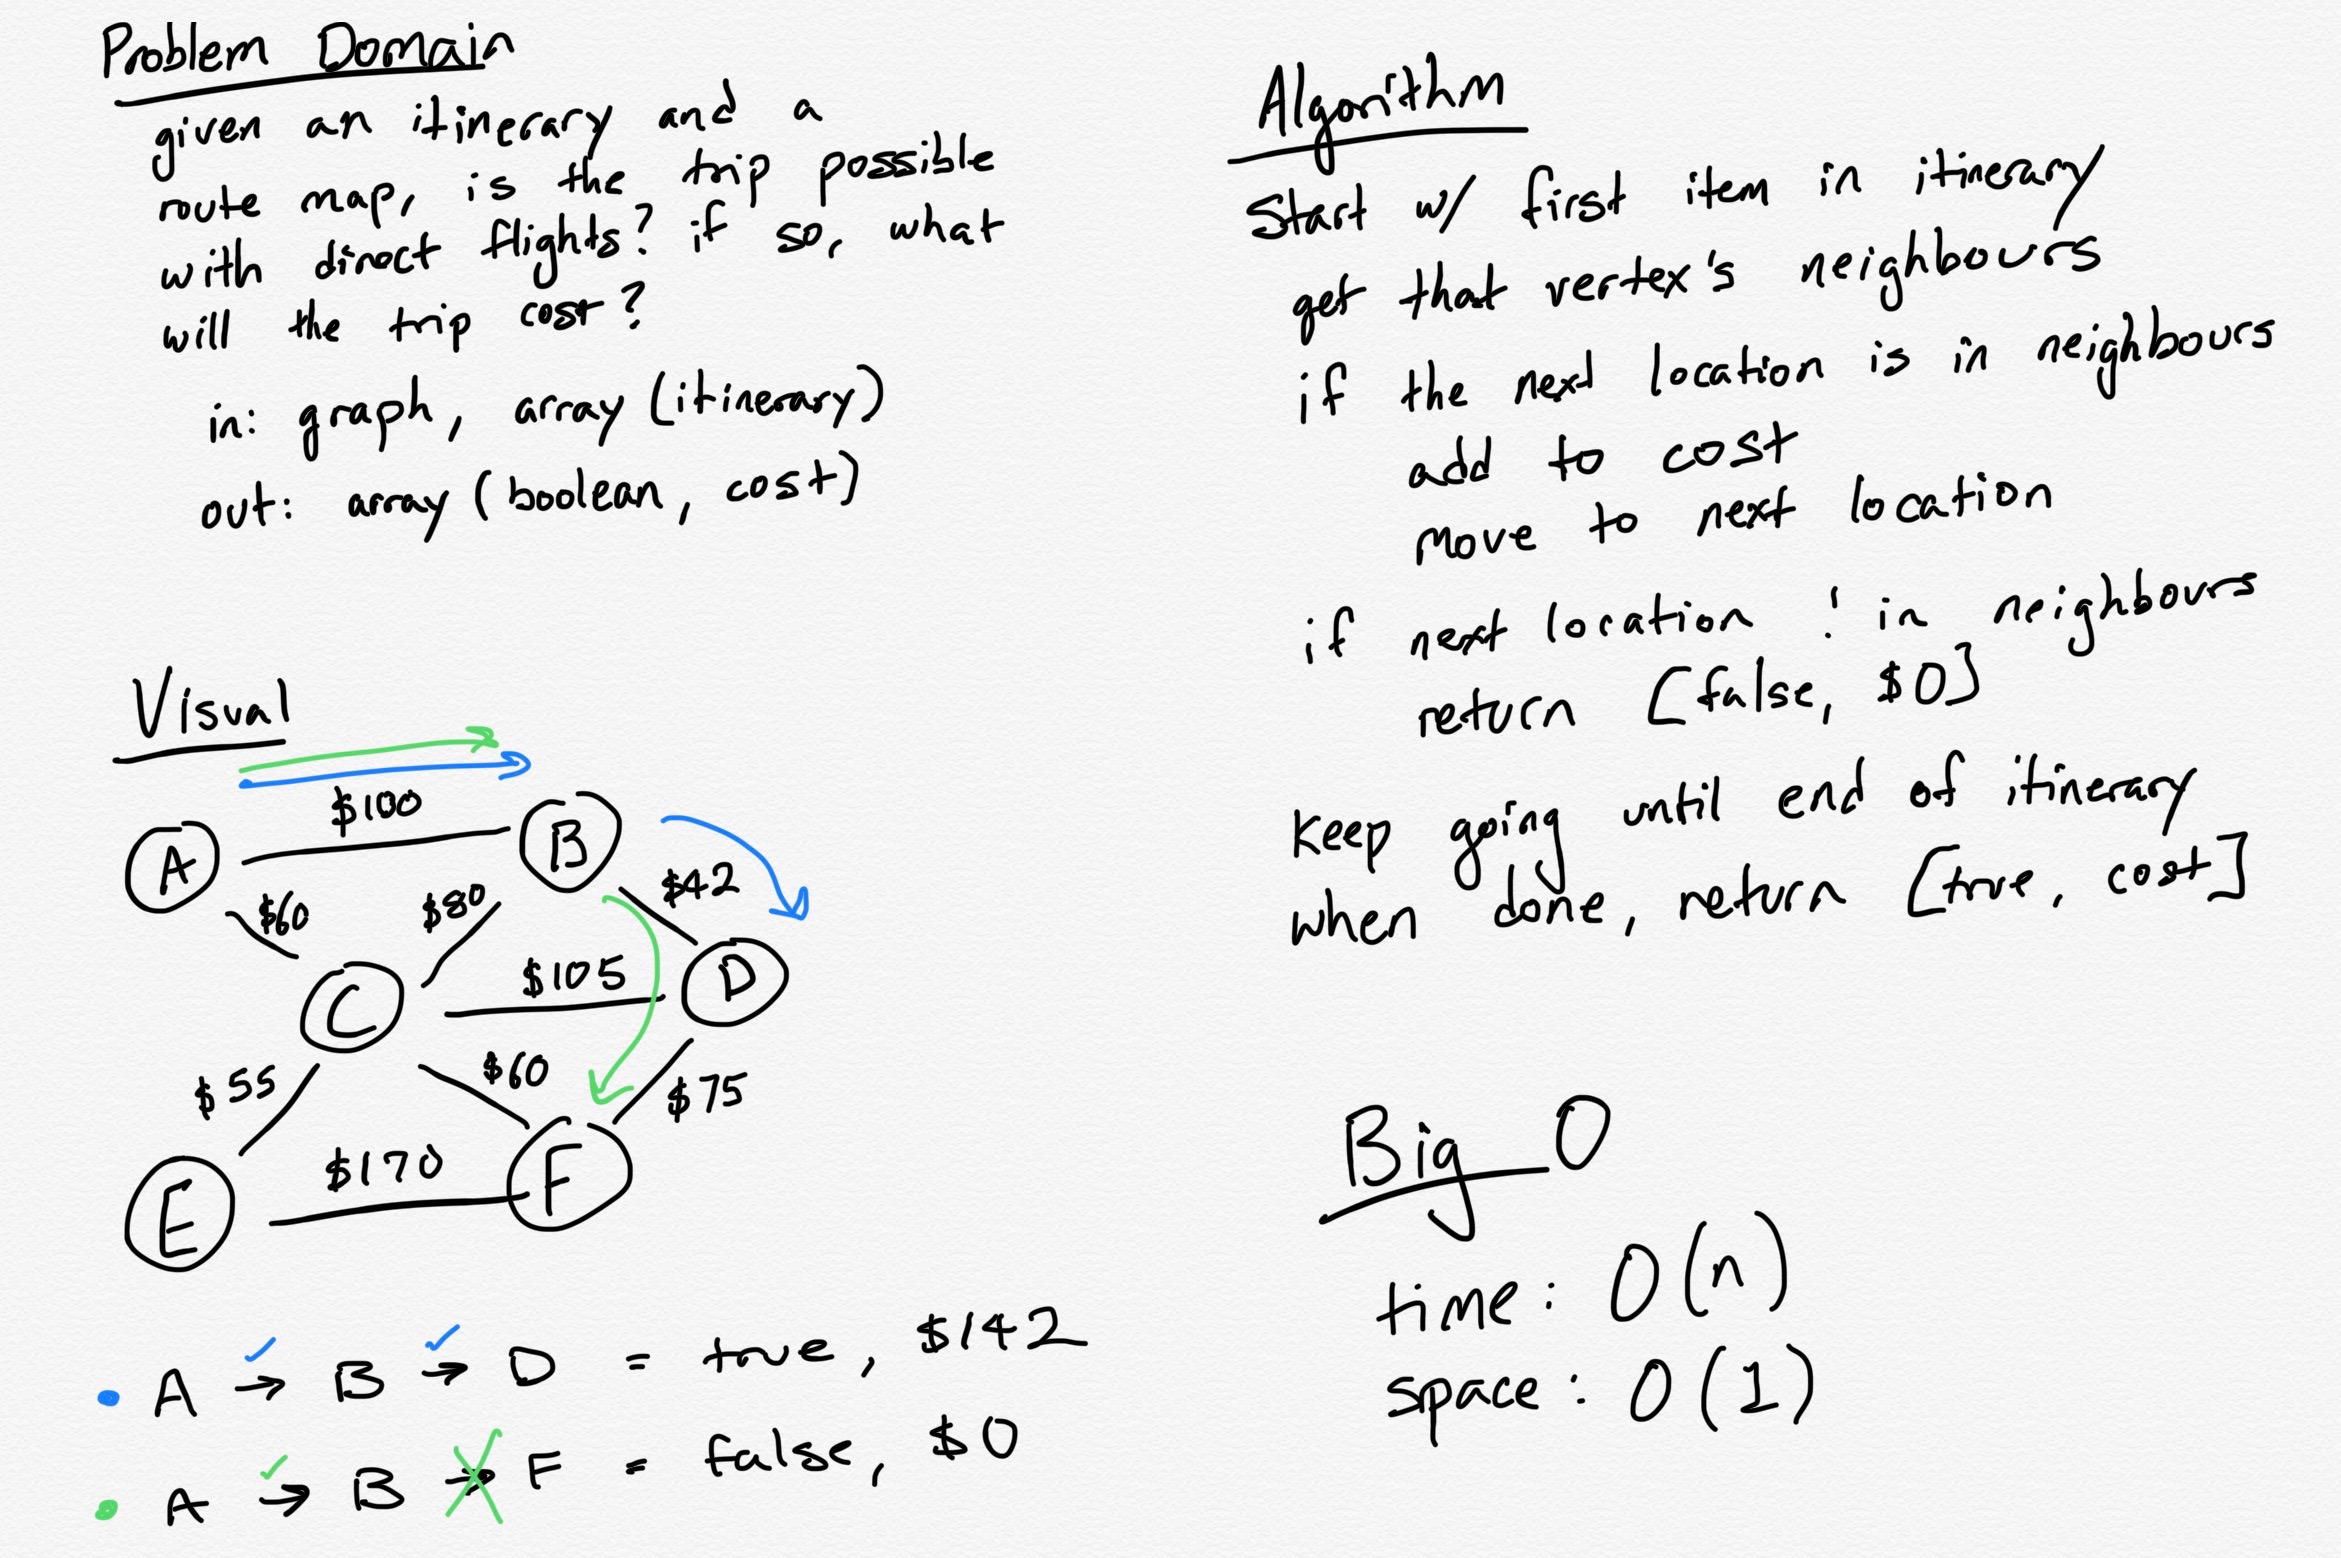 Problem Domain
given an itinerary and a
route map, is the trip possible
with direct flights? if so, what
will the trip cost?
in: graph, array (itinerary)
out: array (boolean, cost)
Visual
$100
A
B
$60
$80
$42
C
$105
D
$55
$60
$75
E
$170
F
• A → B → D = true, $142
• A → B → F = false, $0
Algorithm
Start w/ first item in itinerary
get that vertex's neighbours
if the next location is in neighbours
add to cost
move to next location
if next location ! in neighbours
return [false, $0]
Keep going until end of itinerary
when done, return [true, cost]
Big O
time: O(n)
space: O(1)